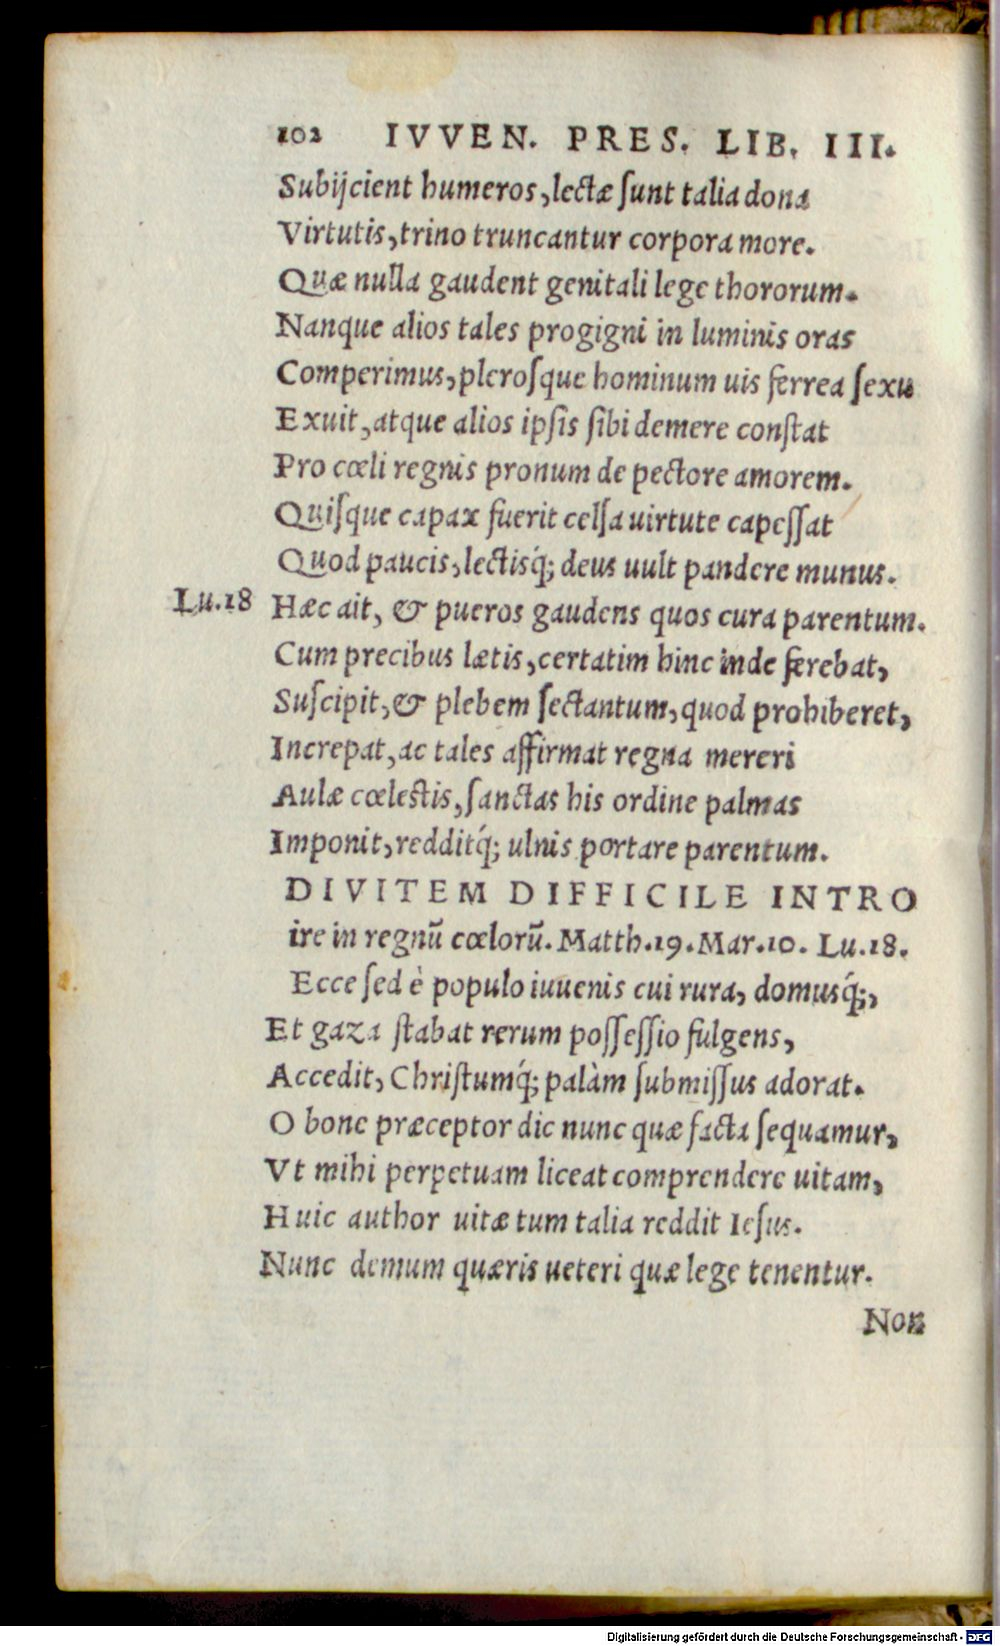 102 IVVEN. PRES. LIB. III.
Subijcient humeros, lectæ ſunt talia dona
Virtutis, trino truncantur corpora more.
Quæ nulla gaudent genitali lege thororum.
Nanque alios tales progigni in luminis oras
Comperimus, pleroſque hominum uis ferrea ſexu
Exuit, atque alios ipſis ſibi demere conſtat
Pro cœli regnis pronum de pectore amorem.
Quiſque capax fuerit celſa uirtute capeſſat
Quod paucis, lectisq́; deus uult pandere munus.
Lu.18 Hæc ait, & pueros gaudens quos cura parentum.
Cum precibus lætis, certatim hinc inde ferebat,
Suſcipit, & plebem ſectantum, quod prohiberet,
Increpat, ac tales affirmat regna mereri
Aulæ cœlestis, ſanctas his ordine palmas
Imponit, redditq́; ulnis portare parentum.
DIVITEM DIFFICILE INTRO
ire in regnū cœlorū. Matth.19. Mar.10. Lu.18.
Ecce ſed è populo iuuenis cui rura, domusq́;,
Et gaza ſtabat rerum poſſeſſio fulgens,
Accedit, Chriſtumq́; palàm ſubmiſſus adorat.
O bone præceptor dic nunc quæ facta ſequamur,
Vt mihi perpetuam liceat comprendere uitam,
Huic author uitæ tum talia reddit Ieſus.
Nunc demum quæris ueteri quæ lege tenentur.
Non
Digitalisierung gefördert durch die Deutsche Forschungsgemeinschaft - DFG